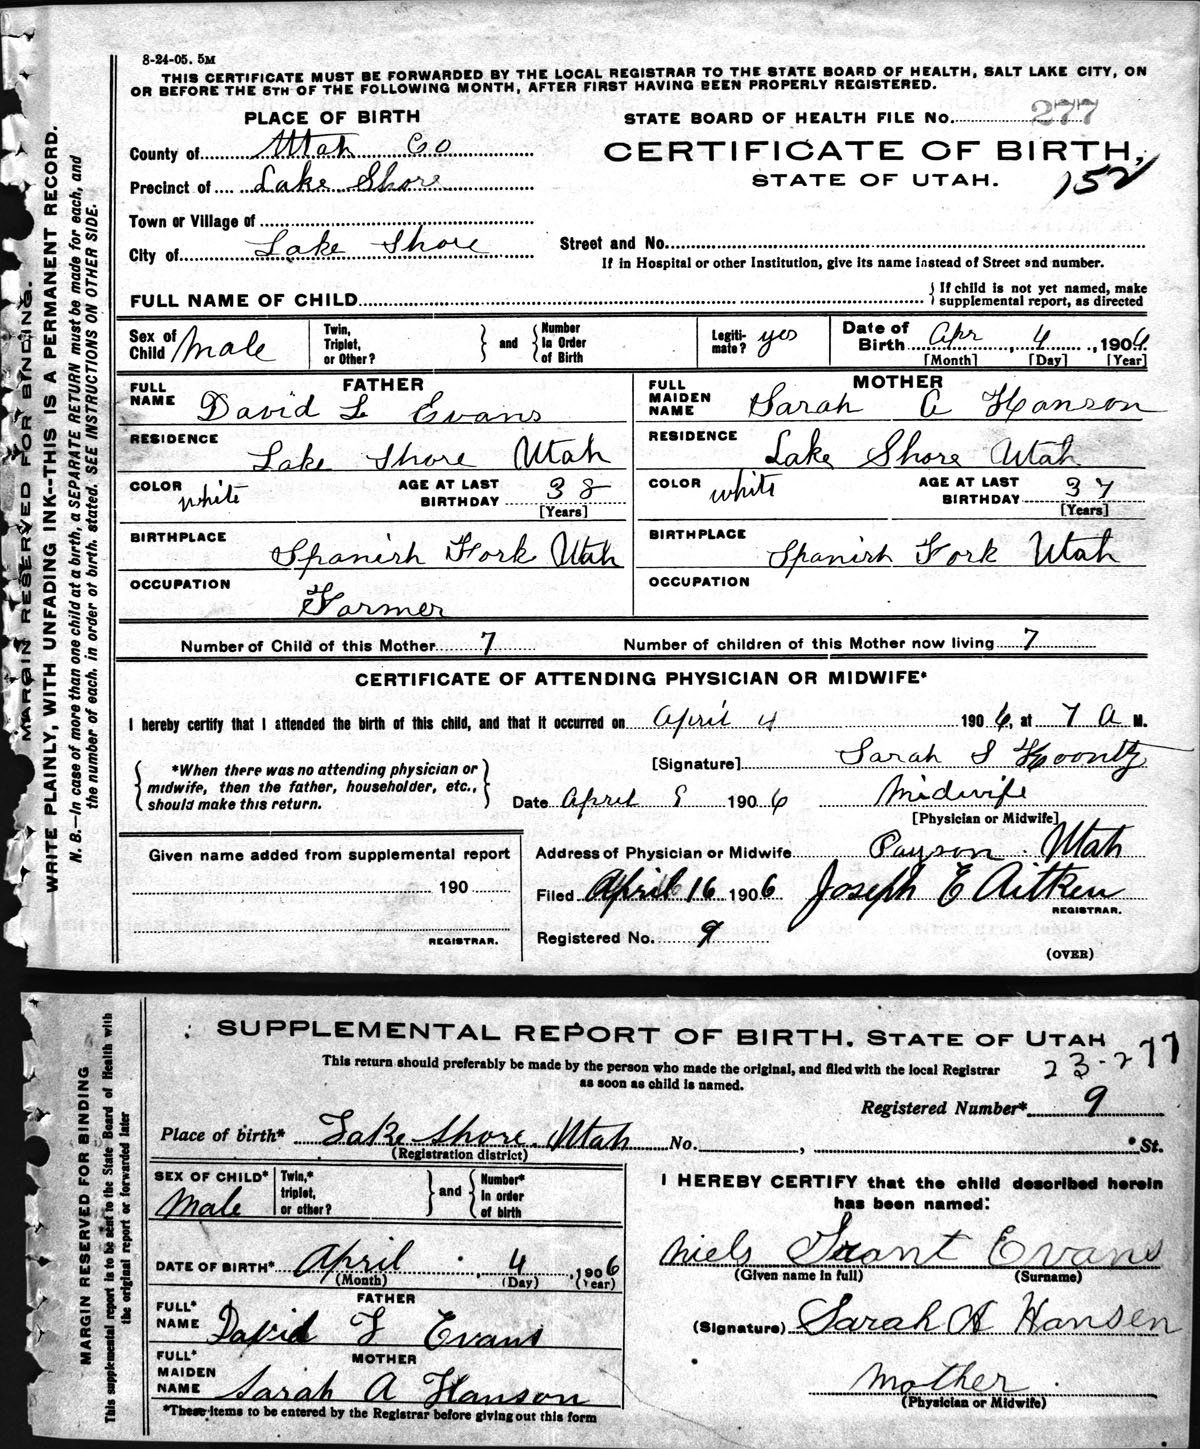 8-24-05. 5M
THIS CERTIFICATE MUST BE FORWARDED BY THE LOCAL REGISTRAR TO THE STATE BOARD OF HEALTH, SALT LAKE CITY, ON
OR BEFORE THE 5TH OF THE FOLLOWING MONTH, AFTER FIRST HAVING BEEN PROPERLY REGISTERED.
PLACE OF BIRTH
STATE BOARD OF HEALTH FILE No. 277
County of Utah Co
CERTIFICATE OF BIRTH,
Precinct of Lake Shore
STATE OF UTAH. 152
Town or Village of
City of Lake Shore
Street and No.
If in Hospital or other Institution, give its name instead of Street and number.
FULL NAME OF CHILD
If child is not yet named, make
supplemental report, as directed
Sex of Child Male
Twin, Triplet, or Other?
and
Number In Order of Birth
Legiti-mate? yes
Date of Birth Apr 4, 1906
[Month] [Day] [Year]
FATHER
FULL NAME David L Evans
RESIDENCE Lake Shore Utah
COLOR white
AGE AT LAST BIRTHDAY 38
[Years]
BIRTHPLACE Spanish Fork Utah
OCCUPATION Farmer
MOTHER
FULL MAIDEN NAME Sarah A Hanson
RESIDENCE Lake Shore Utah
COLOR white
AGE AT LAST BIRTHDAY 37
[Years]
BIRTHPLACE Spanish Fork Utah
OCCUPATION
Number of Child of this Mother 7
Number of children of this Mother now living 7
CERTIFICATE OF ATTENDING PHYSICIAN OR MIDWIFE*
I hereby certify that I attended the birth of this child, and that it occurred on April 4 1906, at 7 A M.
*When there was no attending physician or
midwife, then the father, householder, etc.,
should make this return.
[Signature] Sarah S Koontz
Date April 9 1906 Midwife
[Physician or Midwife]
Given name added from supplemental report
190
REGISTRAR.
Address of Physician or Midwife Payson Utah
Filed April 16 1906 Joseph E Aitken
REGISTRAR.
Registered No. 9
(OVER)
MARGIN RESERVED FOR BINDING.
WRITE PLAINLY, WITH UNFADING INK--THIS IS A PERMANENT RECORD.
N. B.—In case of more than one child at a birth, a SEPARATE RETURN must be made for each, and
the number of each, in order of birth, stated. SEE INSTRUCTIONS ON OTHER SIDE.
SUPPLEMENTAL REPORT OF BIRTH. STATE OF UTAH
This return should preferably be made by the person who made the original, and filed with the local Registrar
as soon as child is named.
23-277
Registered Number* 9
Place of birth* Lake Shore. Utah No. , St.
(Registration district)
SEX OF CHILD* Male
Twin,* triplet, or other?
and
Number* in order of birth
DATE OF BIRTH* April 4, 1906
(Month) (Day) (Year)
FATHER
FULL* NAME David L Evans
MOTHER
FULL* MAIDEN NAME Sarah A Hanson
*These items to be entered by the Registrar before giving out this form
I HEREBY CERTIFY that the child described herein
has been named:
Niels Grant Evans
(Given name in full) (Surname)
(Signature) Sarah A Hansen
Mother
(Physician or Midwife)
MARGIN RESERVED FOR BINDING
This supplemental report is to be sent to the State Board of Health with
the original report or forwarded later